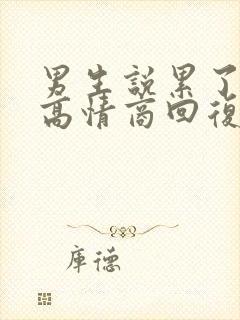 男生說累了
高情商回復
庫德